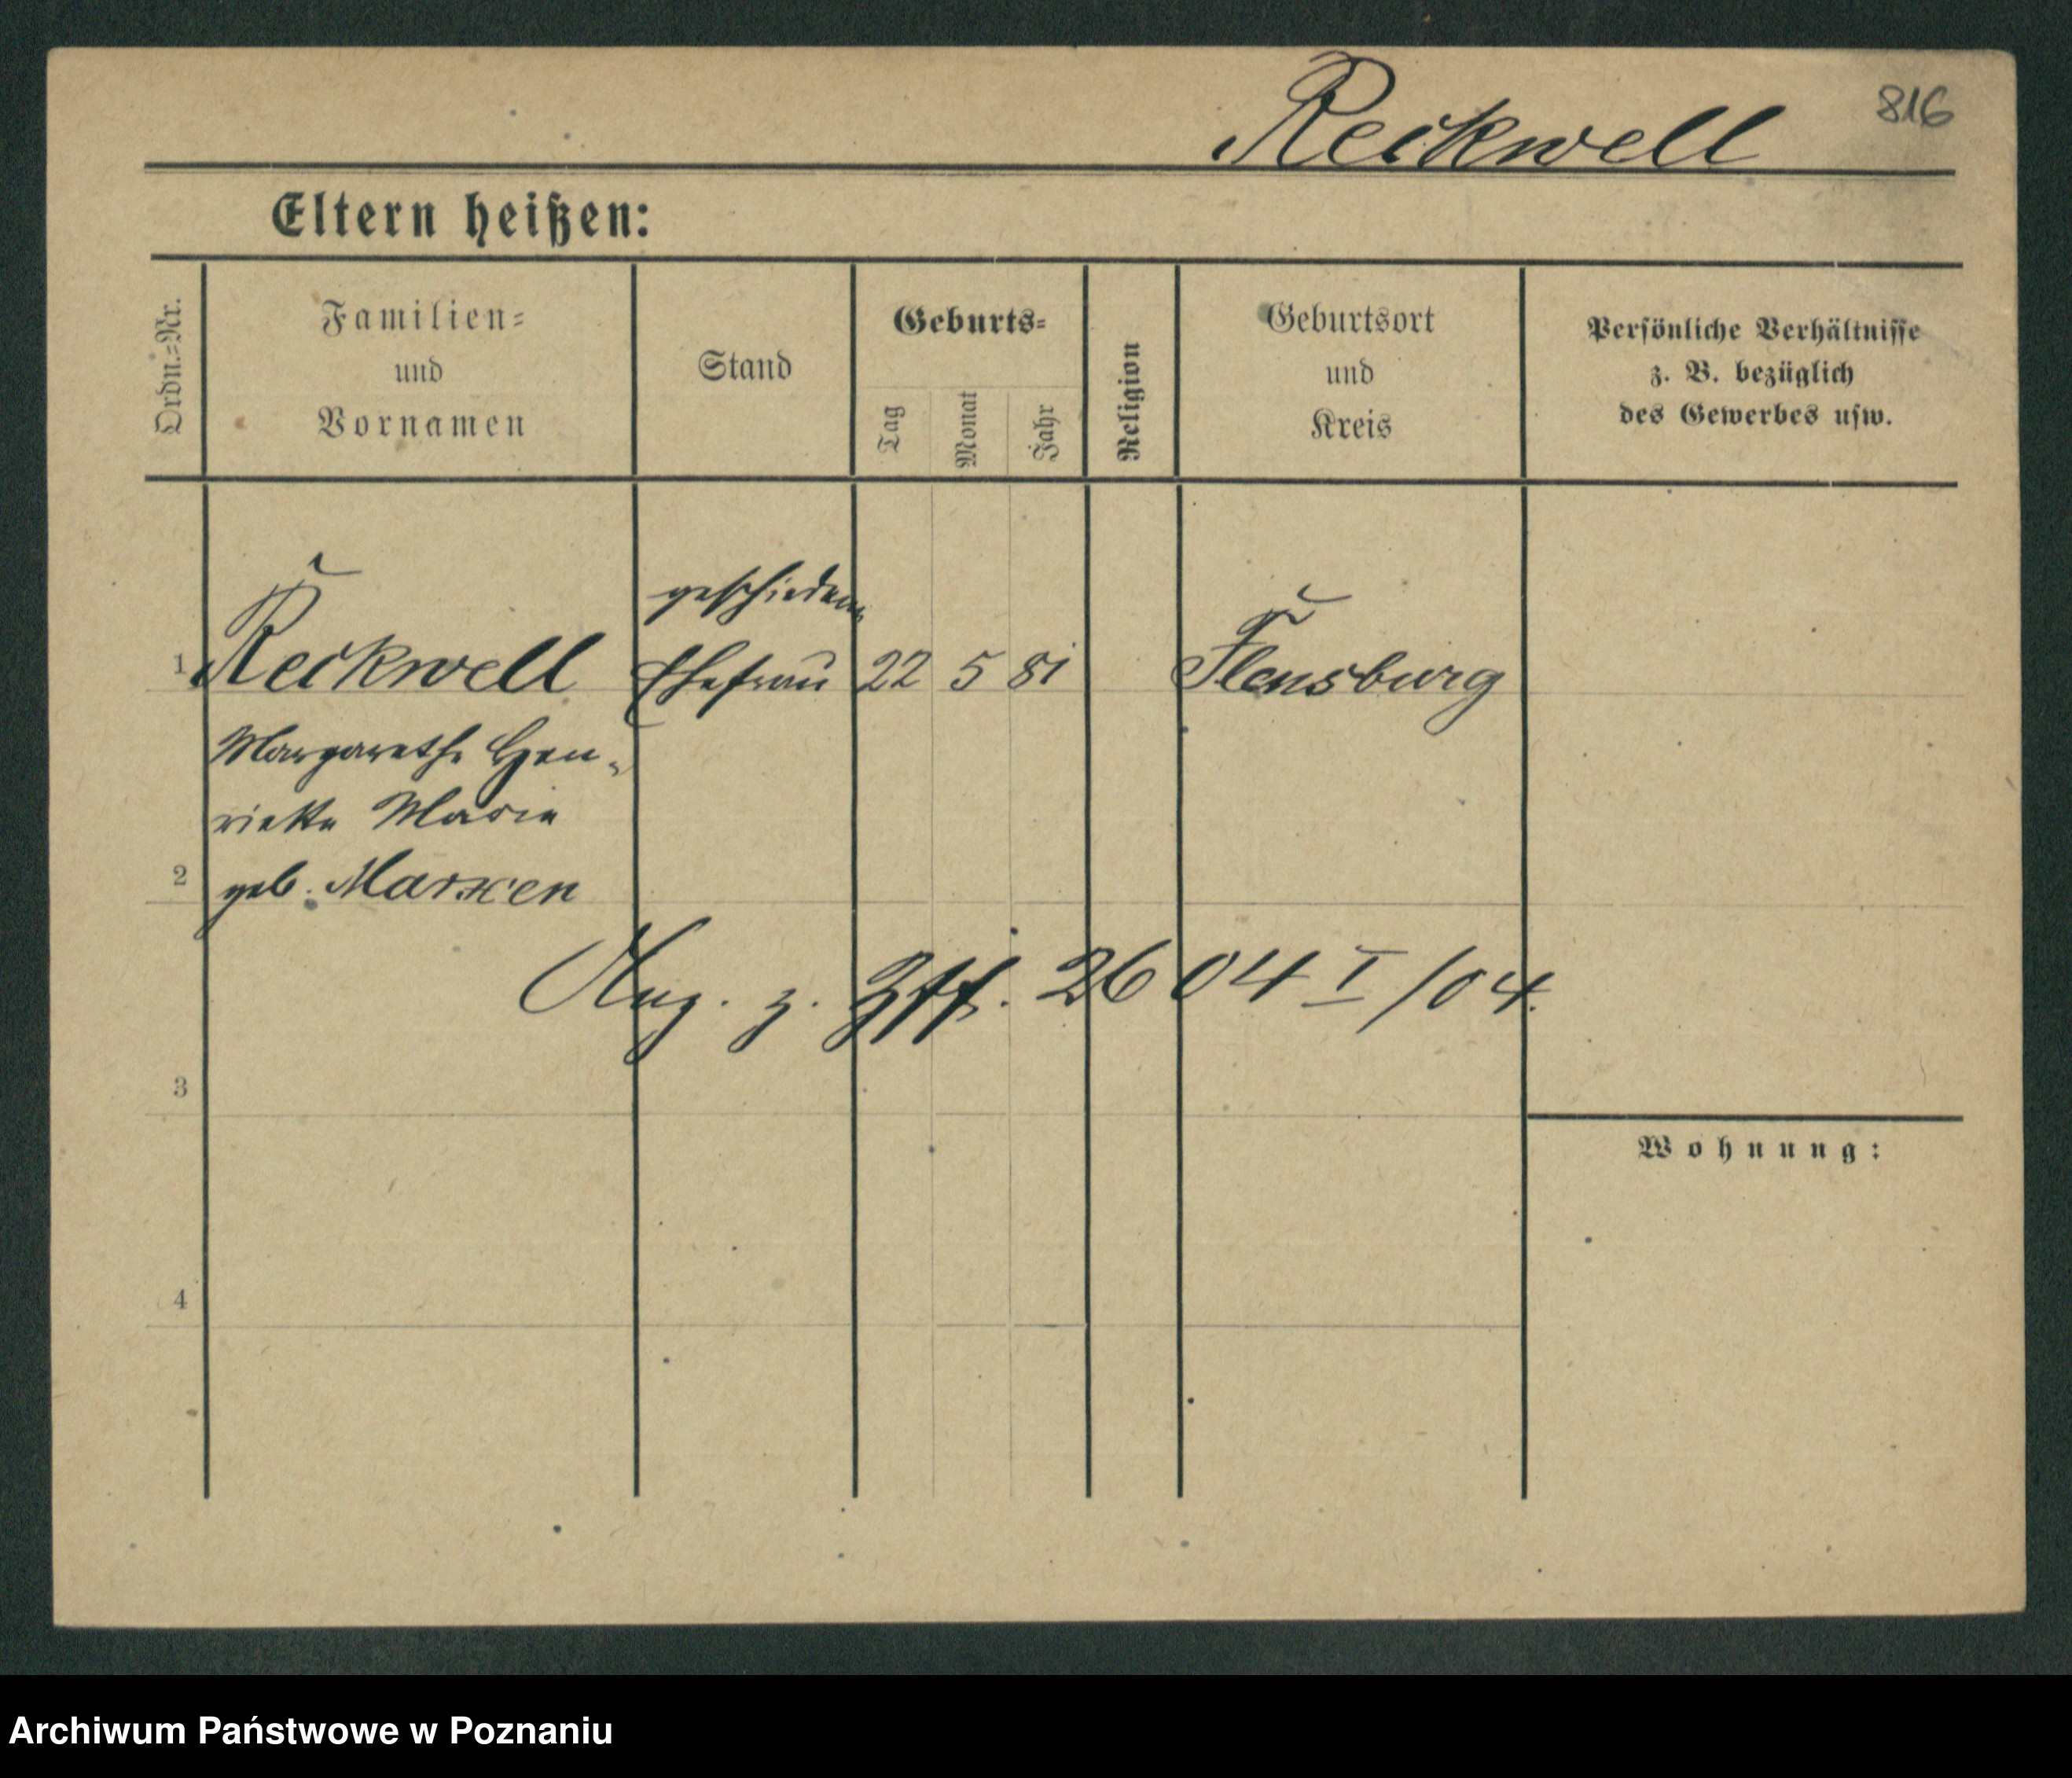 Reckwell
816
Eltern heißen:
Ordn.=Nr.
Familien=
und
Vornamen
Stand
Geburts=
Tag
Monat
Jahr
Religion
Geburtsort
und
Kreis
Persönliche Verhältnisse
z. B. bezüglich
des Gewerbes usw.
geschiedene
1 Reckwell Ehefrau 22 5 81 Flensburg
Margarethe Hen-
riette Marie
2 geb. Marxen
z. 2604 I/04.
3
Wohnung:
4
Archiwum Państwowe w Poznaniu